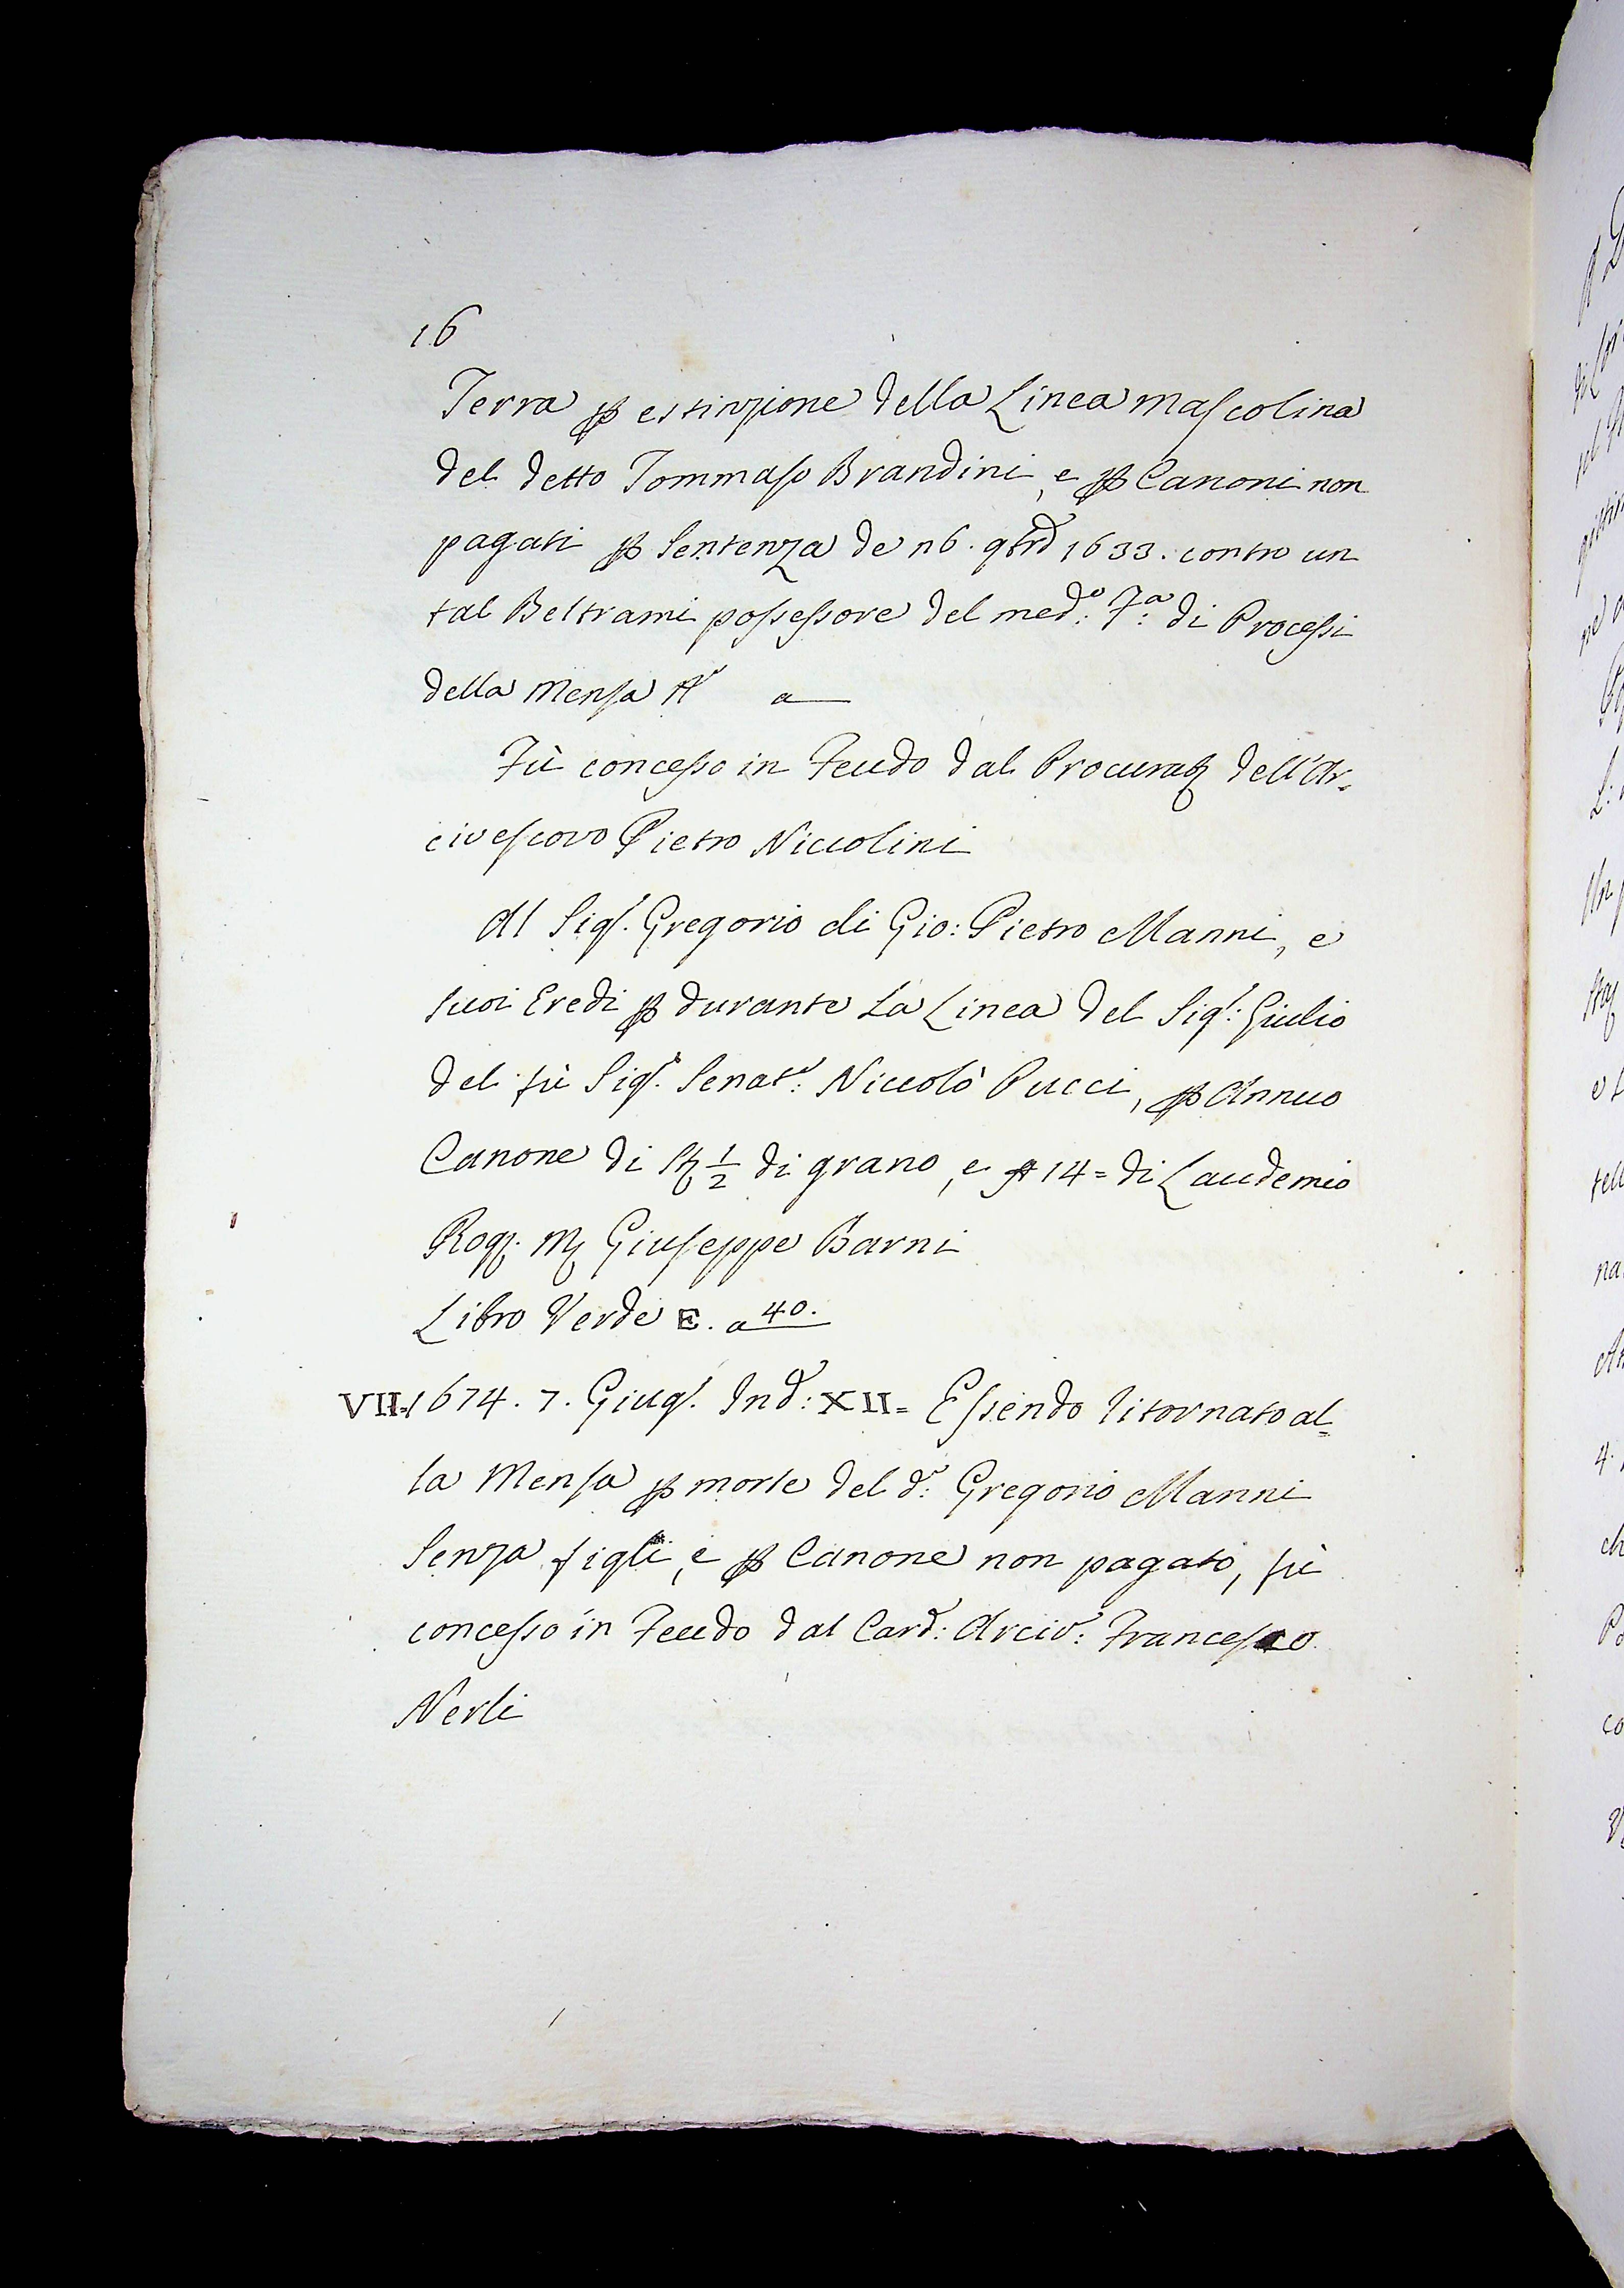 16
Terra ꝑ estinzione della Linea mascolina
del detto Tommaso Brandini, e ꝑ Canoni non
pagati ꝑ Sentenza de 1633. contro un
tal Beltrami possessore del med.º F.ª di Processi
della Mensa Aᵉ a
Fù concesso in Feudo dal Procurat dell'Ar-
civescovo Pietro Niccolini
Al Sigʳ. Gregorio di Gio: Pietro Manni, e
suoi Eredi ꝑ durante la Linea del Sigʳ: Giulio
del fù Sigʳ. Senatᵉ: Niccolò Pucci, ꝑ Annuo
Canone di St ½ di grano, e 14= di Laudemio
Rog. M Giuseppe Barni
Libro Verde E. a 40.
VII. 1674. 7. Giugʳ. Ind: XII= Essendo ritornato al=
la Mensa ꝑ morte del dº: Gregorio Manni
Senza figli, e ꝑ Canone non pagato, fù
concesso in Feudo dal Card: Arciv: Francesco
Nerli